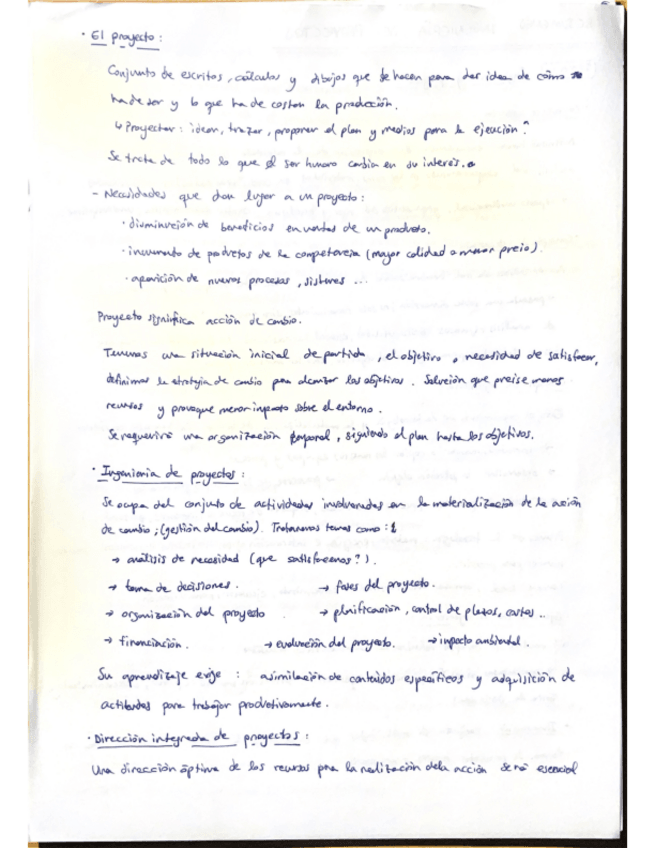 · El proyecto:
Conjunto de escritos, cálculos y dibujos que se hacen para dar idea de cómo
ha de ser y lo que ha de costar la producción.
↳ Proyectar: idear, trazar, proponer el plan y medios para la ejecución
Se trata de todo lo que el ser humano cambia en su interés.
- Necesidades que dan lugar a un proyecto:
· disminución de beneficios en ventas de un producto.
· incremento de productos de la competencia (mayor calidad o menor precio).
· aparición de nuevos procesos, sistemas ...
Proyecto significa acción de cambio.
Tenemos una situación inicial de partida, el objetivo, necesidad de satisfacer,
definimos la estrategia de cambio para alcanzar los objetivos. Solución que precise menos
recursos y provoque menor impacto sobre el entorno.
Se requerirá una organización temporal, siguiendo el plan hasta los objetivos.
· Ingeniería de proyectos:
Se ocupa del conjunto de actividades involucradas en la materialización de la acción
de cambio; (gestión del cambio). Trataremos temas como:
→ análisis de necesidad (que satisfacemos?).
→ toma de decisiones. → fases del proyecto.
→ organización del proyecto → planificación, control de plazos, costes...
→ financiación. → evaluación del proyecto. → impacto ambiental.
Su aprendizaje exige: asimilación de contenidos específicos y adquisición de
actitudes para trabajar productivamente.
· Dirección integrada de proyectos:
Una dirección óptima de los recursos para la realización de la acción será esencial